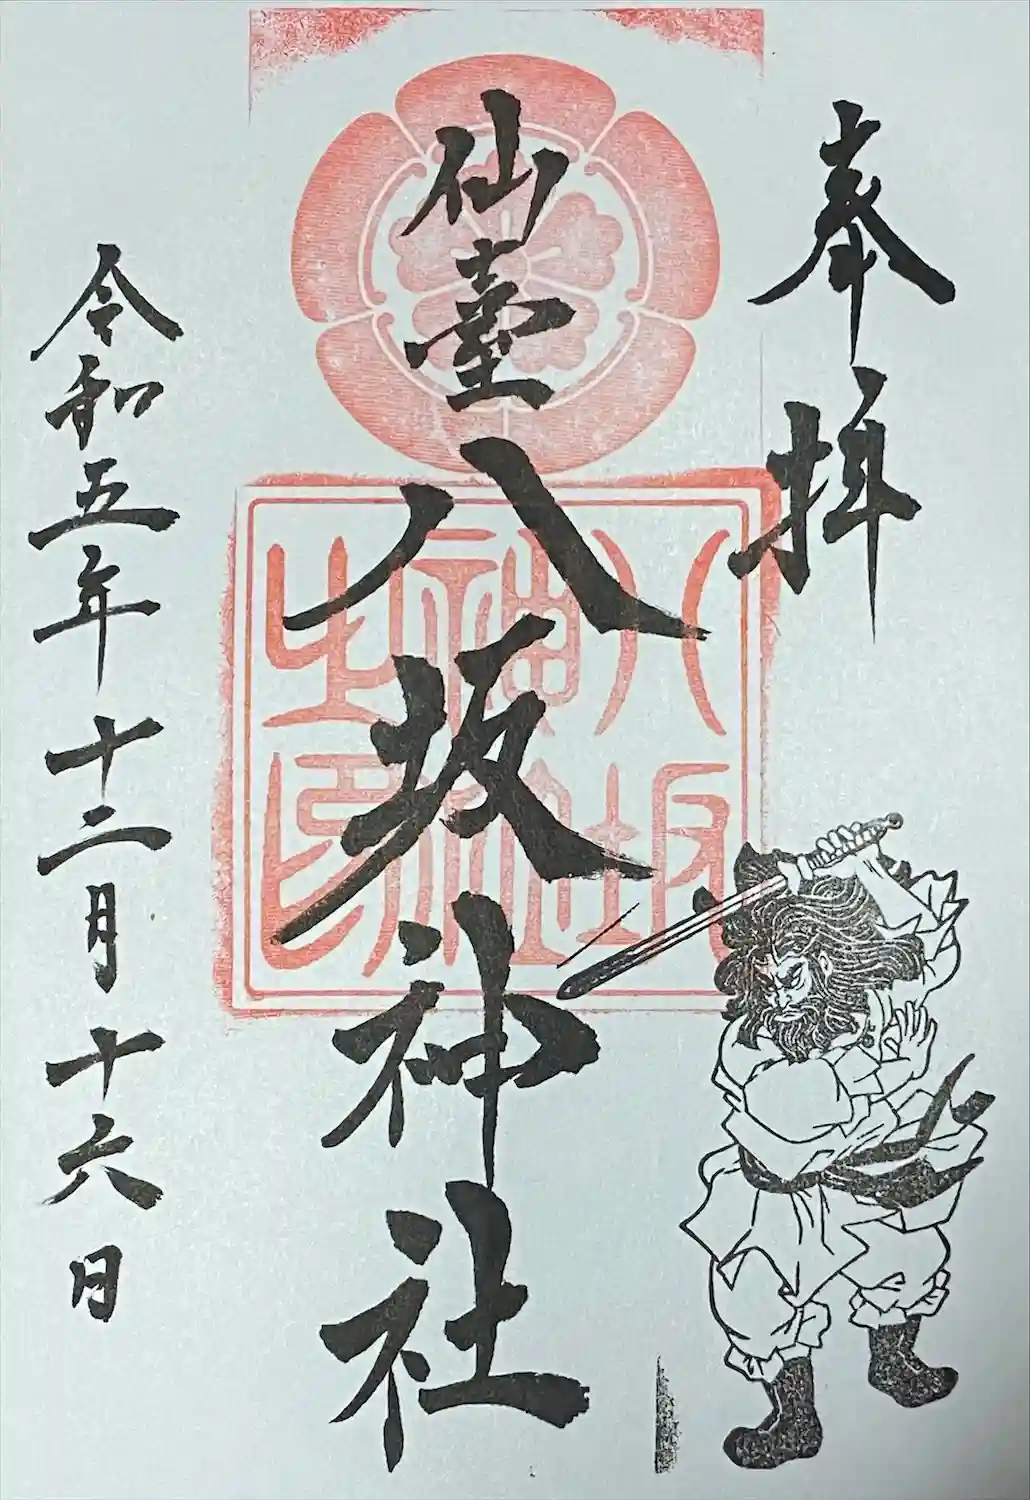 奉拝
仙臺八坂神社
八坂神社之印
令和五年十二月十六日